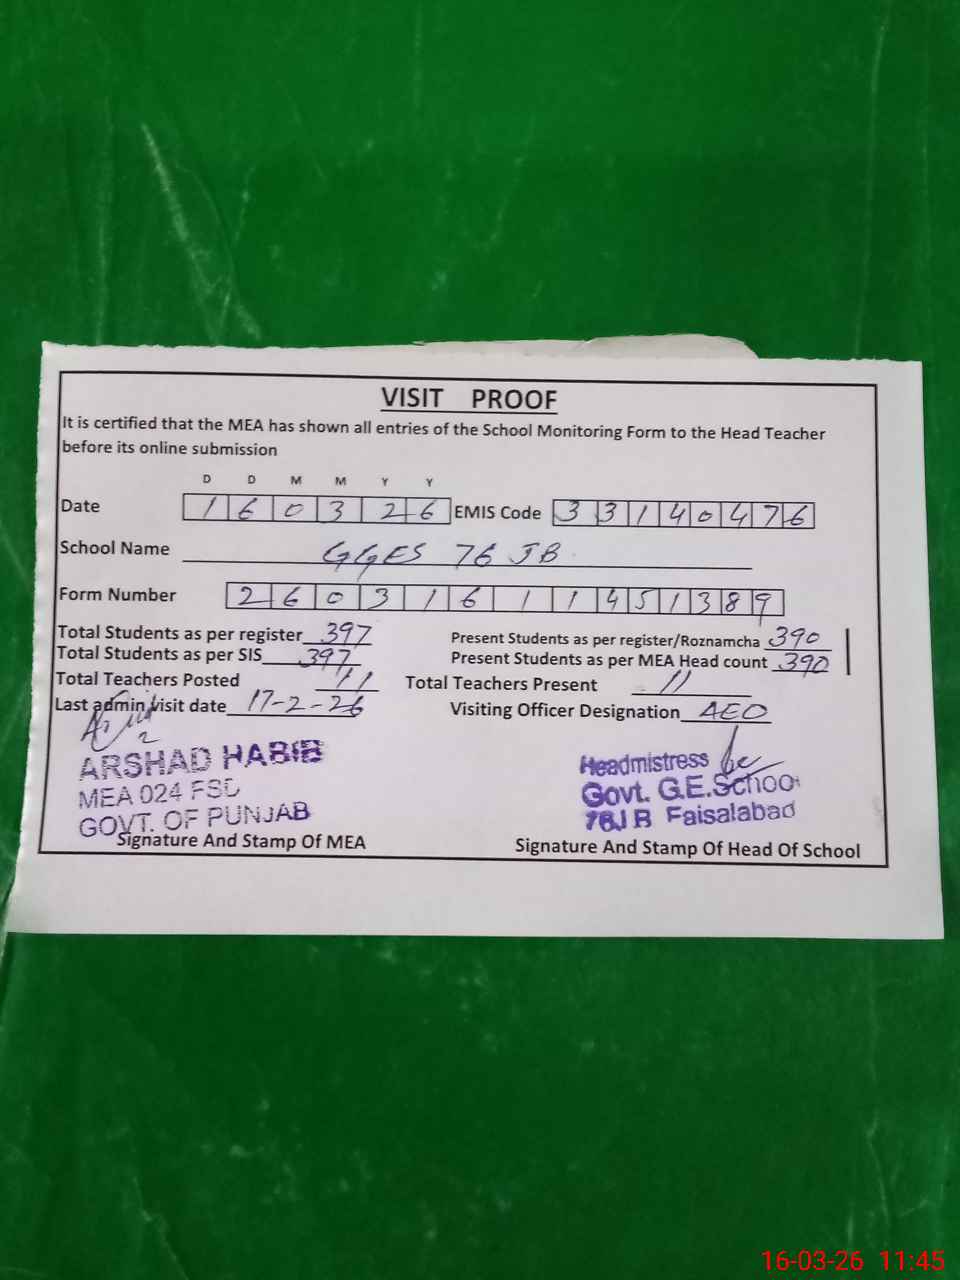 VISIT PROOF
It is certified that the MEA has shown all entries of the School Monitoring Form to the Head Teacher
before its online submission
D D M M Y Y
Date 1 6 0 3 2 6 EMIS Code 3 3 1 4 0 4 7 6
School Name GGES 76 JB
Form Number 2 6 0 3 1 6 1 1 4 5 1 3 8 9
Total Students as per register 397 Present Students as per register/Roznamcha 390
Total Students as per SIS 397 Present Students as per MEA Head count 390
Total Teachers Posted 11 Total Teachers Present 11
Last admin visit date 17-2-26 Visiting Officer Designation AEO
ARSHAD HABIB
MEA 024 FSD
GOVT. OF PUNJAB
Signature And Stamp Of MEA
Headmistress
Govt. G.E.School
76J B Faisalabad
Signature And Stamp Of Head Of School
16-03-26 11:45